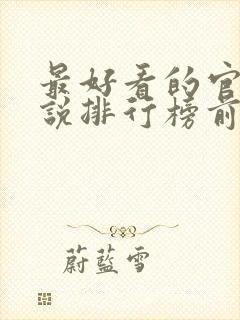 最好看的官
説排行榜前
蔚藍雪